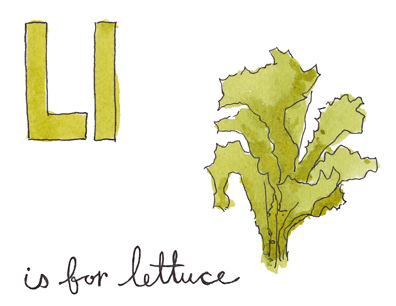 Ll
is for lettuce